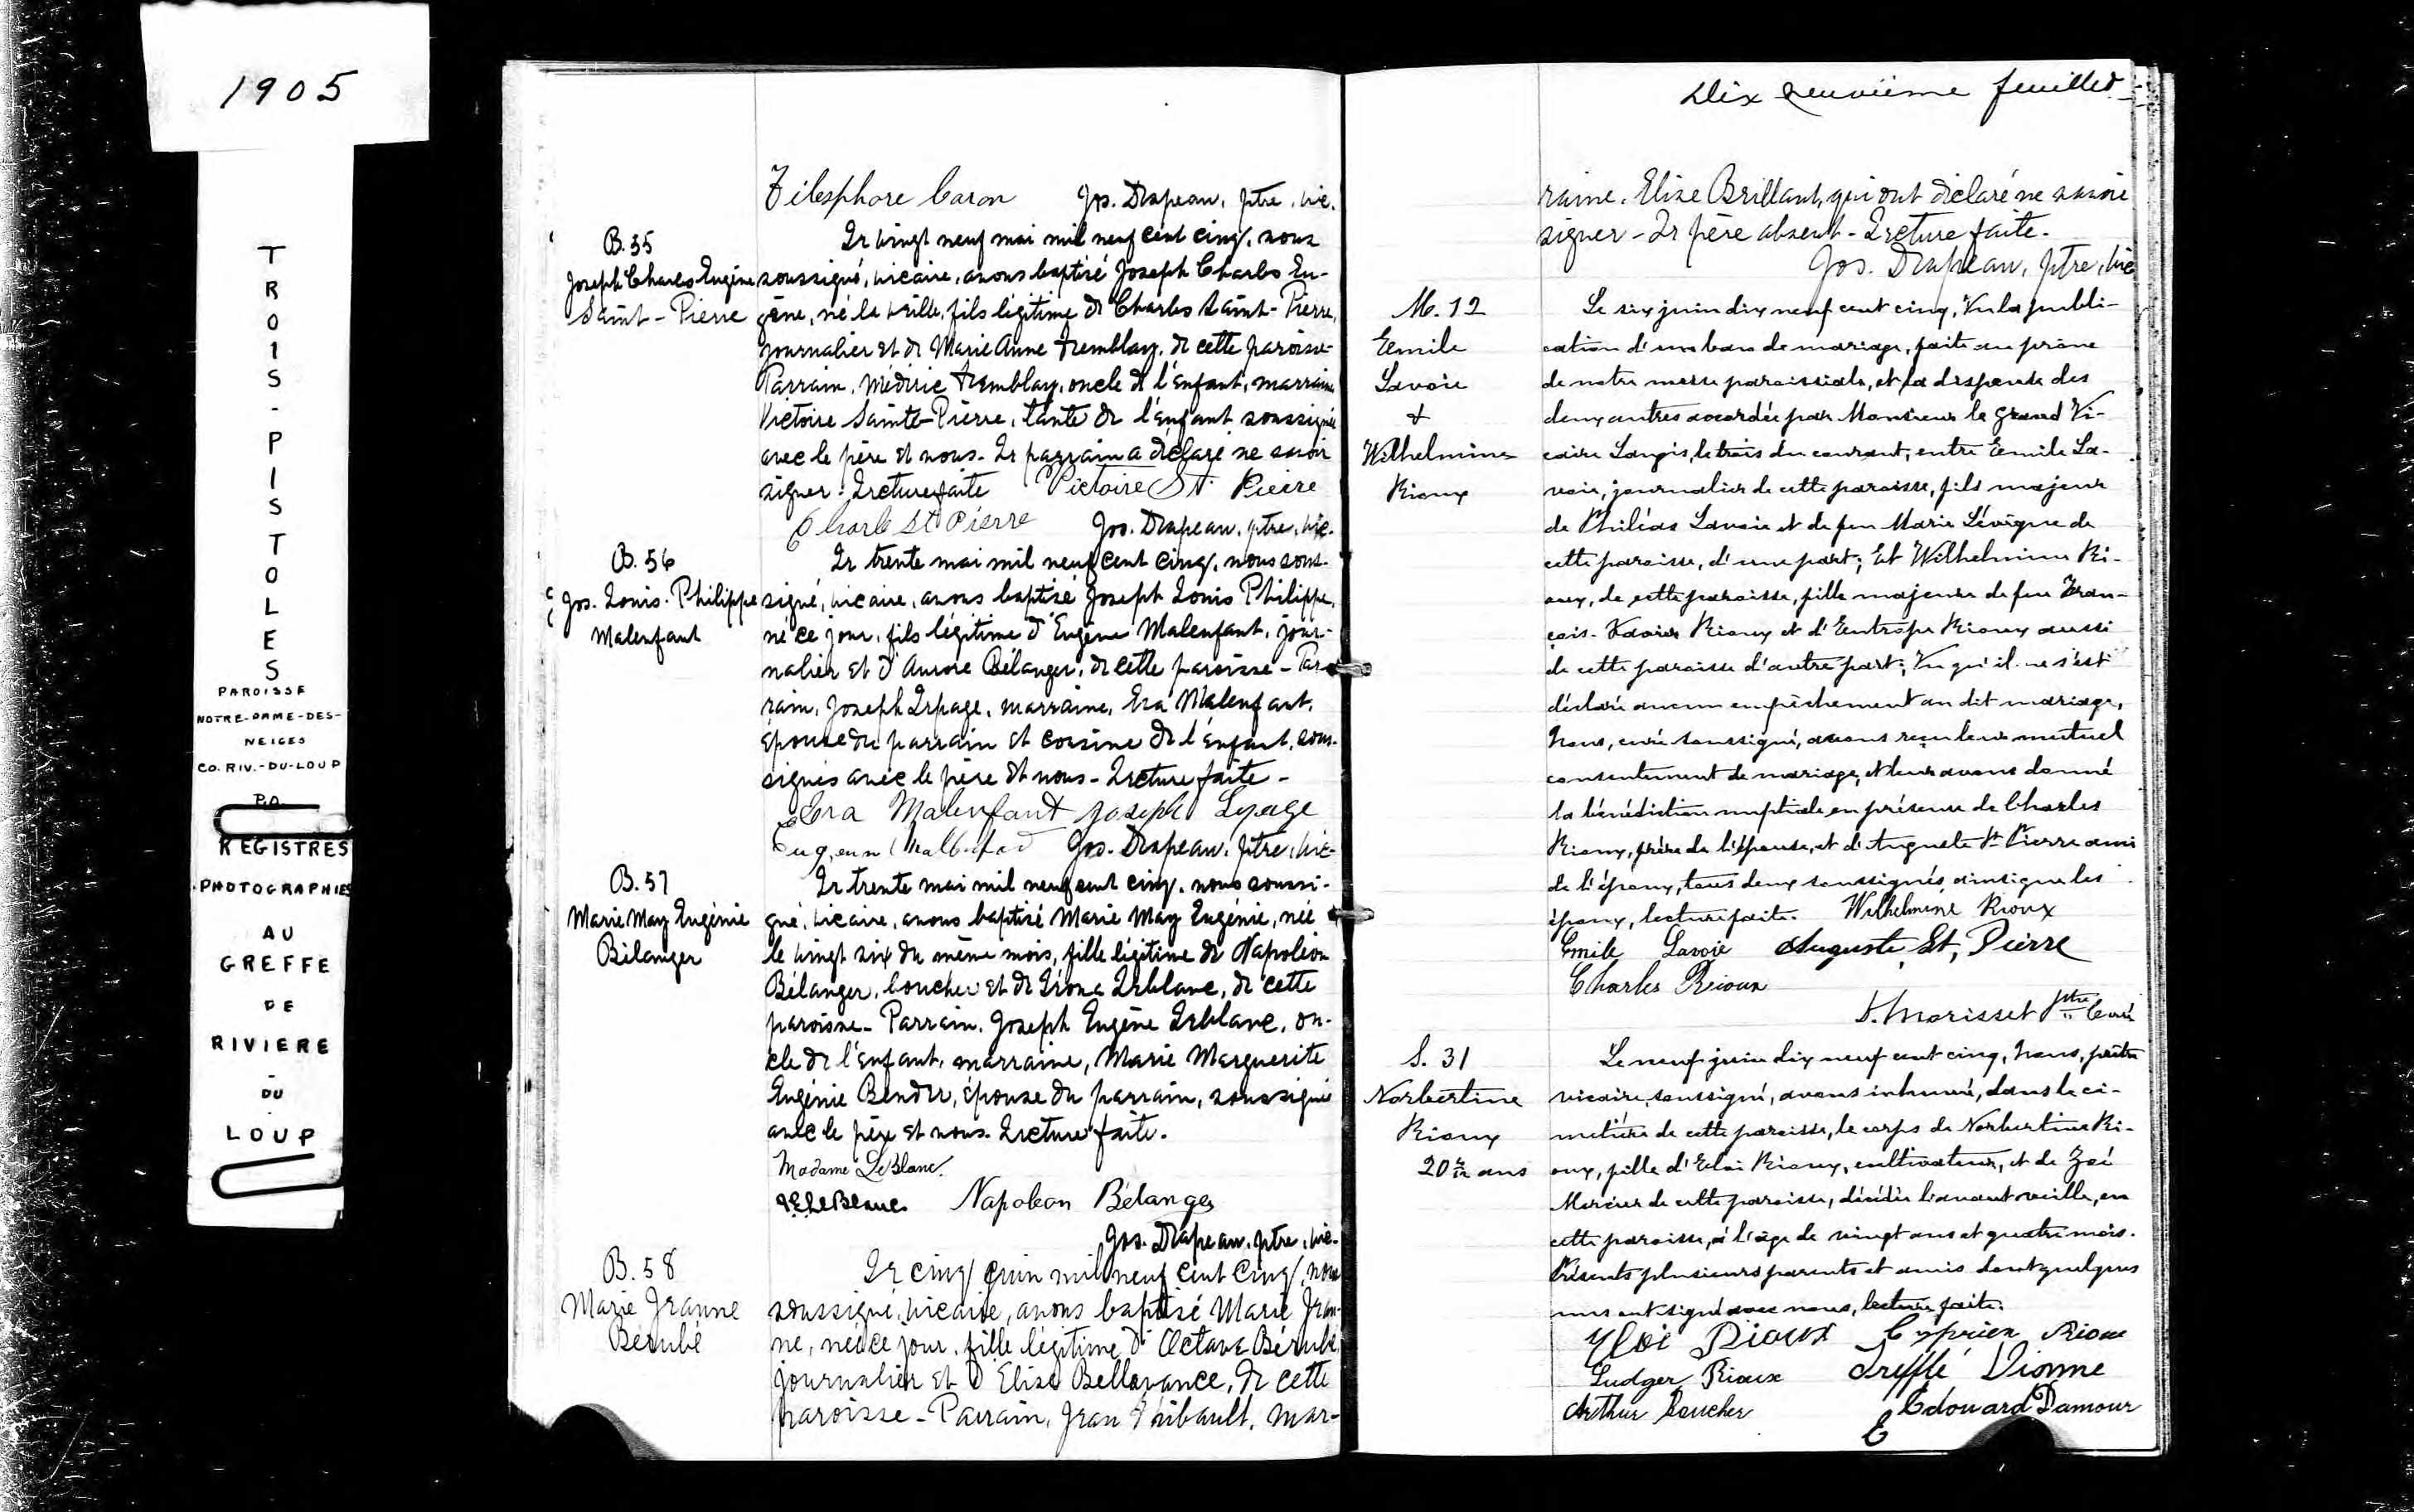 1905
TROIS-PISTOLES
PAROISSE
NOTRE-DAME-DES-
NEIGES
CO. RIV.-DU-LOUP
P.Q.
REGISTRES
PHOTOGRAPHIES
AU
GREFFE
DE
RIVIERE
-
DU
LOUP
Télesphore Caron Jos. Drapeau, ptre, vic.
B. 55
Joseph Charles Eugène
Saint-Pierre
Le vingt neuf mai mil neuf cent cinq, nous
soussigné, vicaire, avons baptisé Joseph Charles Eu-
gène, né la veille, fils légitime de Charles Saint-Pierre,
journalier et de Marie Anne Tremblay, de cette paroisse-
Parrain, Médéric Tremblay, oncle de l'enfant, marraine
Victoire Sainte-Pierre, tante de l'enfant soussignée
avec le père et nous. Le parrain a déclaré ne savoir
signer. Lecture faite Victoire St Pierre
Charls St Pierre Jos. Drapeau, ptre, vic.
B. 56
Jos. Louis. Philippe
Malenfant
Le trente mai mil neuf cent cinq, nous sous-
signé, vicaire, avons baptisé Joseph Louis Philippe,
né ce jour, fils légitime d'Eugène Malenfant, jour-
nalier et d'Aurore Bélanger, de cette paroisse - Par-
rain, Joseph Lepage, marraine, Eva Malenfant,
épouse du parrain et cousine de l'enfant, sous-
signés avec le père et nous - Lecture faite -
Eva Malenfant Joseph Lepage
Jos. Drapeau, ptre, vic-
B. 57
Marie May Eugénie
Bélanger
Le trente mai mil neuf cent cinq, nous soussi-
gné, vicaire, avons baptisé Marie May Eugénie, née
le vingt six du même mois, fille légitime de Napoléon
Bélanger, boucher et de Léona Leblanc, de cette
paroisse - Parrain, Joseph Eugène Leblanc, on-
cle de l'enfant, marraine, Marie Marguerite
Eugénie Bender, épouse du parrain, soussignés
avec le père et nous. Lecture faite.
Madame LeBlanc.
J.E. LeBlanc. Napoleon Bélanger
Jos. Drapeau, ptre, vic-
B. 58
Marie Jeanne
Bérubé
Le cinq juin mil neuf cent cinq, nous
soussigné, vicaire, avons baptisé Marie Jean-
ne, née ce jour, fille légitime d'Octave Bérubé,
journalier et d'Elise Bellavance, de cette
paroisse - Parrain, Jean Thibault, mar-
Dix neuvième feuillet
raine, Elise Brillant, qui ont déclaré ne savoir
signer - Le père absent - Lecture faite -
Jos. Drapeau, ptre, vic
M. 12
Emile
Lavoie
&
Wilhelmine
Rioux
Le six juin dix neuf cent cinq, Vu la publi-
cation d'un ban de mariage, faite au prône
de notre messe paroissiale, et la dispense des
deux autres accordée par Monsieur le Grand Vi-
caire Langis, le trois du courant, entre Emile La-
voie, journalier de cette paroisse, fils majeur
de Philéas Lavoie et de feu Marie Lévèque de
cette paroisse, d'une part; Et Wilhelmine Ri-
oux, de cette paroisse, fille majeure de feu Fran-
çois-Xavier Rioux et d'Eutrope Rioux aussi
de cette paroisse d'autre part; Vu qu'il ne s'est
déclaré aucun empêchement au dit mariage,
Nous, curé soussigné, avons reçu leur mutuel
consentement de mariage, et leur avons donné
la bénédiction nuptiale en présence de Charles
Rioux, frère de l'épouse, et d'Auguste St Pierre ami
de l'époux, tous deux soussignés, ainsi que les
époux, lecture faite. Wilhelmine Rioux
Emile Lavoie Auguste St, Pierre
Charles Rioux
D. Morisset Ptre Curé
S. 31
Norbertine
Rioux
20 4/12 ans
Le neuf juin dix neuf cent cinq, Nous, prêtre
vicaire, soussigné, avons inhumé, dans le ci-
metière de cette paroisse, le corps de Norbertine Ri-
oux, fille d'Eloi Rioux, cultivateur, et de Zoé
Mercier de cette paroisse, décédée l'avant veille, en
cette paroisse, à l'âge de vingt ans et quatre mois.
Présents plusieurs parents et amis dont quelques
uns ont signé avec nous, lecture faite.
Eloi Rioux Cyprien Rioux
Ludger Rioux Treffle Dionne
Arthur Boucher Edouard Damour